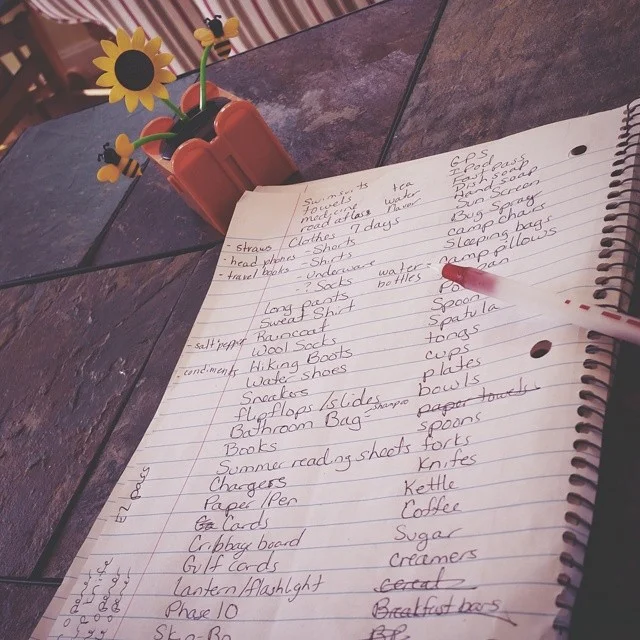 Swimsuits
towels
medicine
road atlas
tea
water
flavor
Clothes - 7 days
- Shorts
- Shirts
- underware
- ? Socks
- straws
- head phones
- travel books
water
bottles
Long pants
Sweat Shirt
Raincoat
Wool Socks
Hiking Boots
Water Shoes
Sneakers
flipflops/slides
Bathroom Bag
Books
Summer reading sheets
Chargers
Paper/Pen
Cards
Cribbage board
Gulf cards
Lantern/flashlight
Phase 10
Skip-Bo
- salt/pepper
- condiments
EZ Pass
GPS
Dish soap
Hand soap
Sun Screen
Bug Spray
camp chairs
Sleeping bags
camp pillows
Spoon
Spatula
tongs
cups
plates
bowls
paper towels
spoons
forks
Knifes
Kettle
Coffee
Sugar
creamers
cereal
Breakfast bars